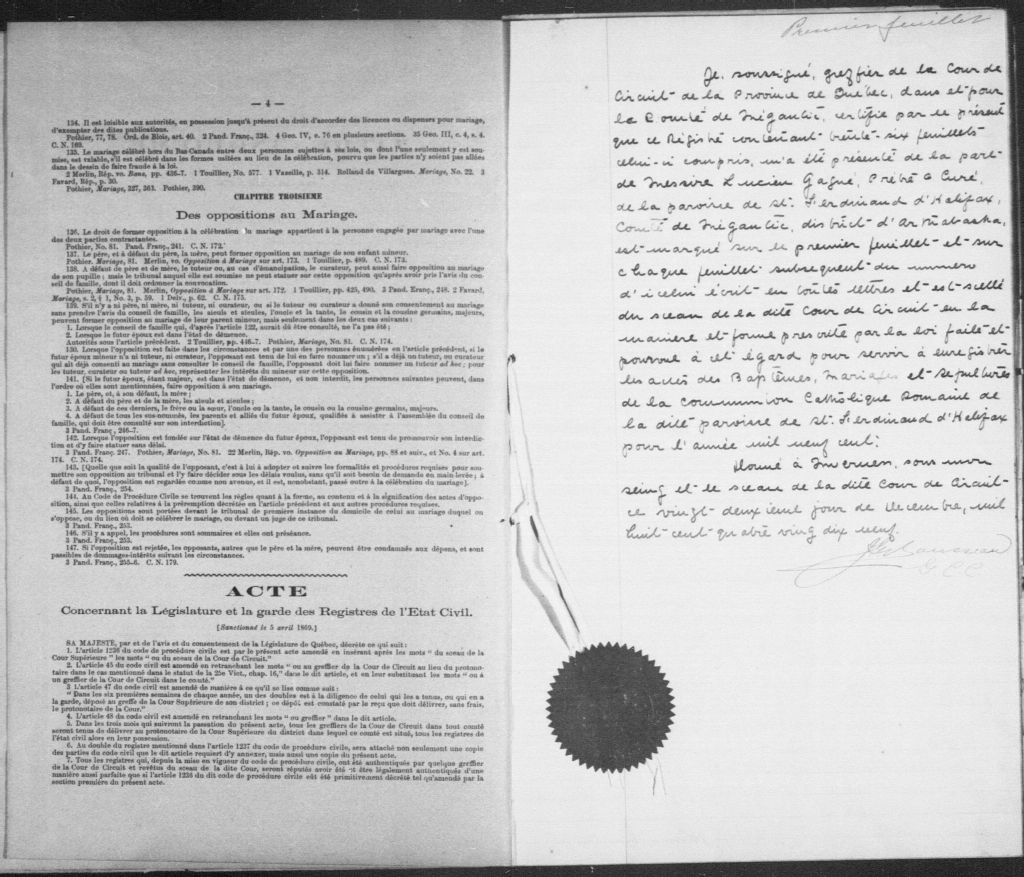 — 4 —
134. Il est loisible aux autorités, en possession jusqu'à présent du droit d'accorder des licences ou dispenses pour mariage,
d'exempter des dites publications.
Pothier, 77, 78. Ord. de Blois, art. 40. 2 Pand. Franç., 324. 4 Geo. IV, c. 76 en plusieurs sections. 35 Geo. III, c. 4, s. 4.
C. N. 169.
135. Le mariage célébré hors du Bas-Canada entre deux personnes sujettes à ses lois, ou dont l'une seulement y est sou-
mise, est valable, s'il est célébré dans les formes usitées au lieu de la célébration, pourvu que les parties n'y soient pas allées
dans le dessin de faire fraude à la loi.
2 Merlin, Rép. vo. Bans, pp. 436-7. 1 Touillier, No. 577. 1 Vazeille, p. 314. Rolland de Villargues. Mariage, No. 22. 3
Favard, Rép., p. 30.
Pothier, Mariage, 327, 363. Pothier, 390.
CHAPITRE TROISIEME
Des oppositions au Mariage.
136. Le droit de former opposition à la célébration du mariage appartient à la personne engagée par mariage avec l'une
des deux parties contractantes.
Pothier, No. 81. Pand. Franç., 241. C. N. 172.
137. Le père, et à défaut du père, la mère, peut former opposition au mariage de son enfant mineur.
Pothier, Mariage, 81. Merlin, vo. Opposition à Mariage sur art. 173. 1 Touillier, p. 489. C. N. 173.
138. A défaut de père et de mère, le tuteur ou, au cas d'émancipation, le curateur, peut aussi faire opposition au mariage
de son pupille ; mais le tribunal auquel elle est soumise ne peut statuer sur cette opposition qu'après avoir pris l'avis du con-
seil de famille, dont il doit ordonner la convocation.
Pothier, Mariage, 81. Merlin, Opposition à Mariage sur art. 172. 1 Touillier, pp. 425, 490. 3 Pand. Franç., 248. 2 Favard,
Mariage, s. 2, § 1, No. 3, p. 59. 1 Delv., p. 62. C. N. 175.
139. S'il n'y a ni père, ni mère, ni tuteur, ni curateur, ou si le tuteur ou curateur a donné son consentement au mariage
sans prendre l'avis du conseil de famille, les aïeuls et aïeules, l'oncle et la tante, le cousin et la cousine germains, majeurs,
peuvent former opposition au mariage de leur parent mineur, mais seulement dans les deux cas suivants :
1. Lorsque le conseil de famille qui, d'après l'article 122, aurait dû être consulté, ne l'a pas été ;
2. Lorsque le futur époux est dans l'état de démence.
Autorités sous l'article précédent. 2 Touillier, pp. 446-7. Pothier, Mariage, No. 81. C. N. 174.
130. Lorsque l'opposition est faite dans les circonstances et par une des personnes énumérées en l'article précédent, si le
futur époux mineur n'a ni tuteur, ni curateur, l'opposant est tenu de lui en faire nommer un ; s'il a déjà un tuteur, ou curateur
qui ait déjà consenti au mariage sans consulter le conseil de famille, l'opposant doit lui faire nommer un tuteur ad hoc ; pour
les tuteur, curateur ou tuteur ad hoc, représenter les intérêts du mineur sur cette opposition.
141. [Si le futur époux, étant majeur, est dans l'état de démence, et non interdit, les personnes suivantes peuvent, dans
l'ordre où elles sont mentionnées, faire opposition à son mariage.
1. Le père, et, à son défaut, la mère ;
2. A défaut du père et de la mère, les aïeuls et aïeules ;
3. A défaut de ces derniers, le frère ou la sœur, l'oncle ou la tante, le cousin ou la cousine germains, majeurs.
4. A défaut de tous les sus-nommés, les parents et alliés du futur époux, qualifiés à assister à l'assemblée du conseil de
famille, qui doit être consulté sur son interdiction].
3 Pand. Franç., 246-7.
142. Lorsque l'opposition est fondée sur l'état de démence du futur époux, l'opposant est tenu de promouvoir son interdic-
tion et d'y faire statuer sans délai.
3 Pand. Franç. 247. Pothier, Mariage, No. 81. 22 Merlin, Rép. vo. Opposition au Mariage, pp. 88 et suiv., et No. 4 sur art.
174. C. N. 174.
143. [Quelle que soit la qualité de l'opposant, c'est à lui à adopter et suivre les formalités et procédures requises pour sou-
mettre son opposition au tribunal et l'y faire décider sous les délais voulus, sans qu'il soit besoin de demande en main-levée ; à
défaut de quoi, l'opposition est regardée comme non avenue, et il est, nonobstant, passé outre à la célébration du mariage].
3 Pand. Franç. 254.
144. Au Code de Procédure Civile se trouvent les règles quant à la forme, au contenu et à la signification des actes d'oppo-
sition, ainsi que celles relatives à la préremption décrétée en l'article précédent et aux autres procédures requises.
145. Les oppositions sont portées devant le tribunal de première instance du domicile de celui au mariage duquel on
s'oppose, ou du lieu où doit se célébrer le mariage, ou devant un juge de ce tribunal.
3 Pand. Franç., 253.
146. S'il y a appel, les procédures sont sommaires et elles ont préséance.
3 Pand. Franç., 253.
147. Si l'opposition est rejetée, les opposants, autres que le père et la mère, peuvent être condamnés aux dépens, et sont
passibles de dommages-intérêts suivant les circonstances.
3 Pand. Franç., 255-6. C. N. 179.
ACTE
Concernant la Législature et la garde des Registres de l'Etat Civil.
[Sanctionné le 5 avril 1869.]
SA MAJESTE, par et de l'avis et du consentement de la Législature de Québec, décrète ce qui suit :
1. L'article 1236 du code de procédure civile est par le présent acte amendé en insérant après les mots " du sceau de la
Cour Supérieure " les mots " ou du sceau de la Cour de Circuit."
2. L'article 45 du code civil est amendé en retranchant les mots " ou au greffier de la Cour de Circuit au lieu du protono-
taire dans le cas mentionné dans le statut de la 25e Vict., chap. 16," dans le dit article, et en leur substituant les mots " ou à
un greffier de la Cour de Circuit dans le comté."
3 L'article 47 du code civil est amendé de manière à ce qu'il se lise comme suit :
" Dans les six premières semaines de chaque année, un des doubles est à la diligence de celui qui les a tenus, ou qui en a
la garde, déposé au greffe de la Cour Supérieure de son district ; ce dépôt est constaté par le reçu que doit délivrer, sans frais,
le protonotaire de la Cour."
4. L'article 48 du code civil est amendé en retranchant les mots " ou greffier " dans le dit article.
5. Dans les trois mois qui suivront la passation du présent acte, tous les greffiers de la Cour de Circuit dans tout comté
seront tenus de délivrer au protonotaire de la Cour Supérieure du district dans lequel ce comté est situé, tous les registres de
l'état civil alors en leur possession.
6. Au double du registre mentionné dans l'article 1237 du code de procédure civile, sera attaché non seulement une copie
des parties du code civil que le dit article requiert d'y annexer, mais aussi une copie du présent acte.
7. Tous les registres qui, depuis la mise en vigueur du code de procédure civile, ont été authentiqués par quelque greffier
de la Cour de Circuit et revêtus du sceau de la dite Cour, seront réputés avoir été et être légalement authentiqués d'une
manière aussi parfaite que si l'article 1236 du dit code de procédure civile eût été primitivement décrété tel qu'amendé par la
section première du présent acte.
Premier feuillet
Je, soussigné, greffier de la Cour de
Circuit de la Province de Québec, dans et pour
le Comté de Mégantic, certifie par le présent
que ce Régistre contenant trente-six feuillets
celui-ci compris, m'a été présenté de la part
de Messire Lucien Gagné, Prêtre & Curé,
de la paroisse de St. Ferdinand d'Halifax,
Comté de Mégantic, district d'Arthabaska,
est marqué sur le premier feuillet et sur
chaque feuillet subsequent du numero
d'icelui écrit en toutes lettres et est scellé
du sceau de la dite Cour de Circuit en la
maniere et forme prescrite par la loi faite et
pourvue à cet égard pour servir à enregistrer
les actes des Baptêmes, Mariages et Sepultures
de la communion Catholique Romaine de
la dite paroisse de St. Ferdinand d'Halifax
pour l'année mil neuf cent;
Donné à Inverness, sous mon
seing et le sceau de la dite Cour de Circuit
ce vingt deuxieme jour de Decembre, mil
huit cent quatre ving dix neuf.
G C C